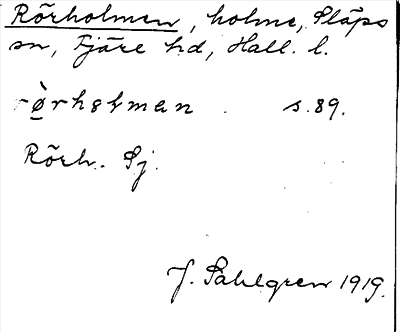 Rörholmen, holme, Släps
sn, Fjäre hd, Hall. l.
rọ̀rhoḷman . s. 89.
Rörh. Sj.
J. Sahlgren 1919.